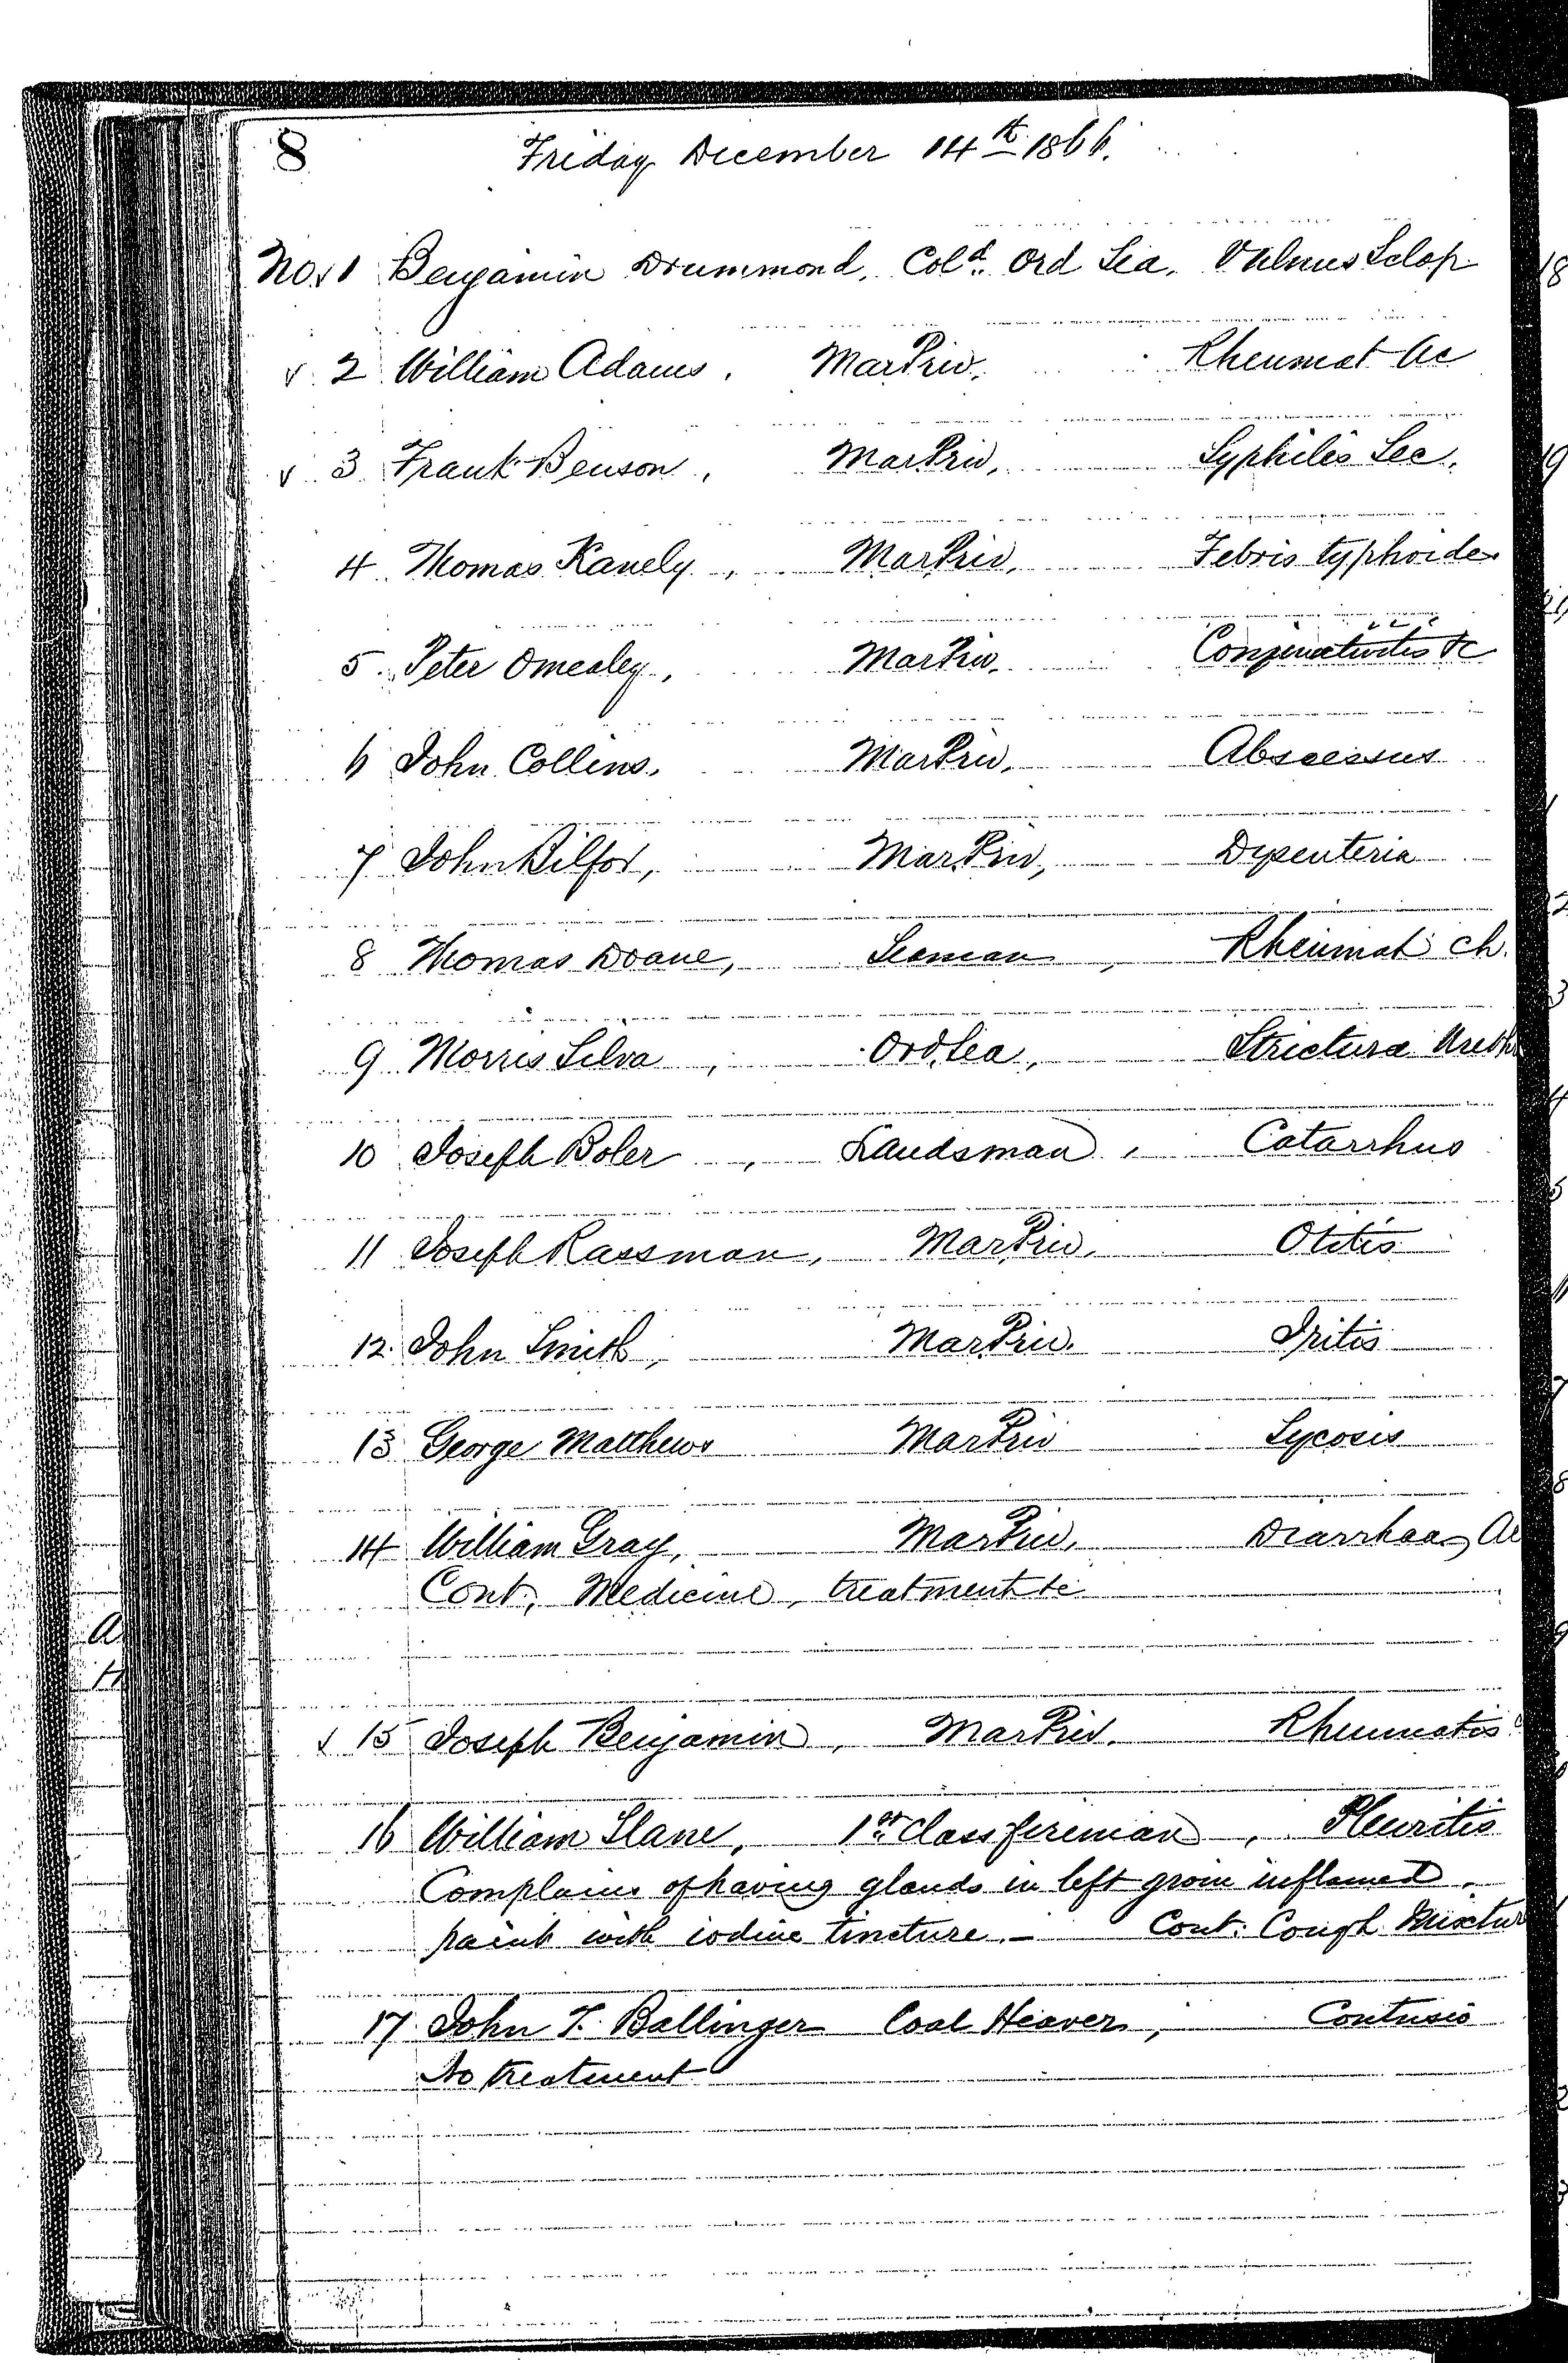 8
Friday December 14th 1866.
No. 1 Benjamin Drummond, Cold. Ord Sea, Vulnus Sclop
2 William Adams, MarPriv, Rheumat Ac
3 Frank Benson, MarPriv, Syphilis Sec,
4 Thomas Kanely, MarPriv, Febris typhoides
5 Peter Omealey, MarPriv, Conjunctivitis &c
6 John Collins, MarPriv, Abscessus
7 John Kilfor, MarPriv, Dysenteria
8 Thomas Doane, Seaman, Rheumat ch.
9 Morris Silva, Ord, Sea, Strictura Ureth
10 Joseph Boler, Landsman, Catarrhus
11 Joseph Rassman, MarPriv, Otitis
12. John Smith, MarPriv. Iritis
13 George Matthews MarPriv Sycosis
14 William Gray, MarPriv, Diarrhaea, Ac
Cont, Medicine, treatment &c
15 Joseph Benjamin, MarPriv. Rheumatis
16 William Slane, 1st Class fireman, Pleuritis
Complains of having glands in left groin inflamed,
paint with iodine tincture. — Cont: Cough Mixtur
17 John T. Ballinger Coal Heaver, Contusio
No treatment